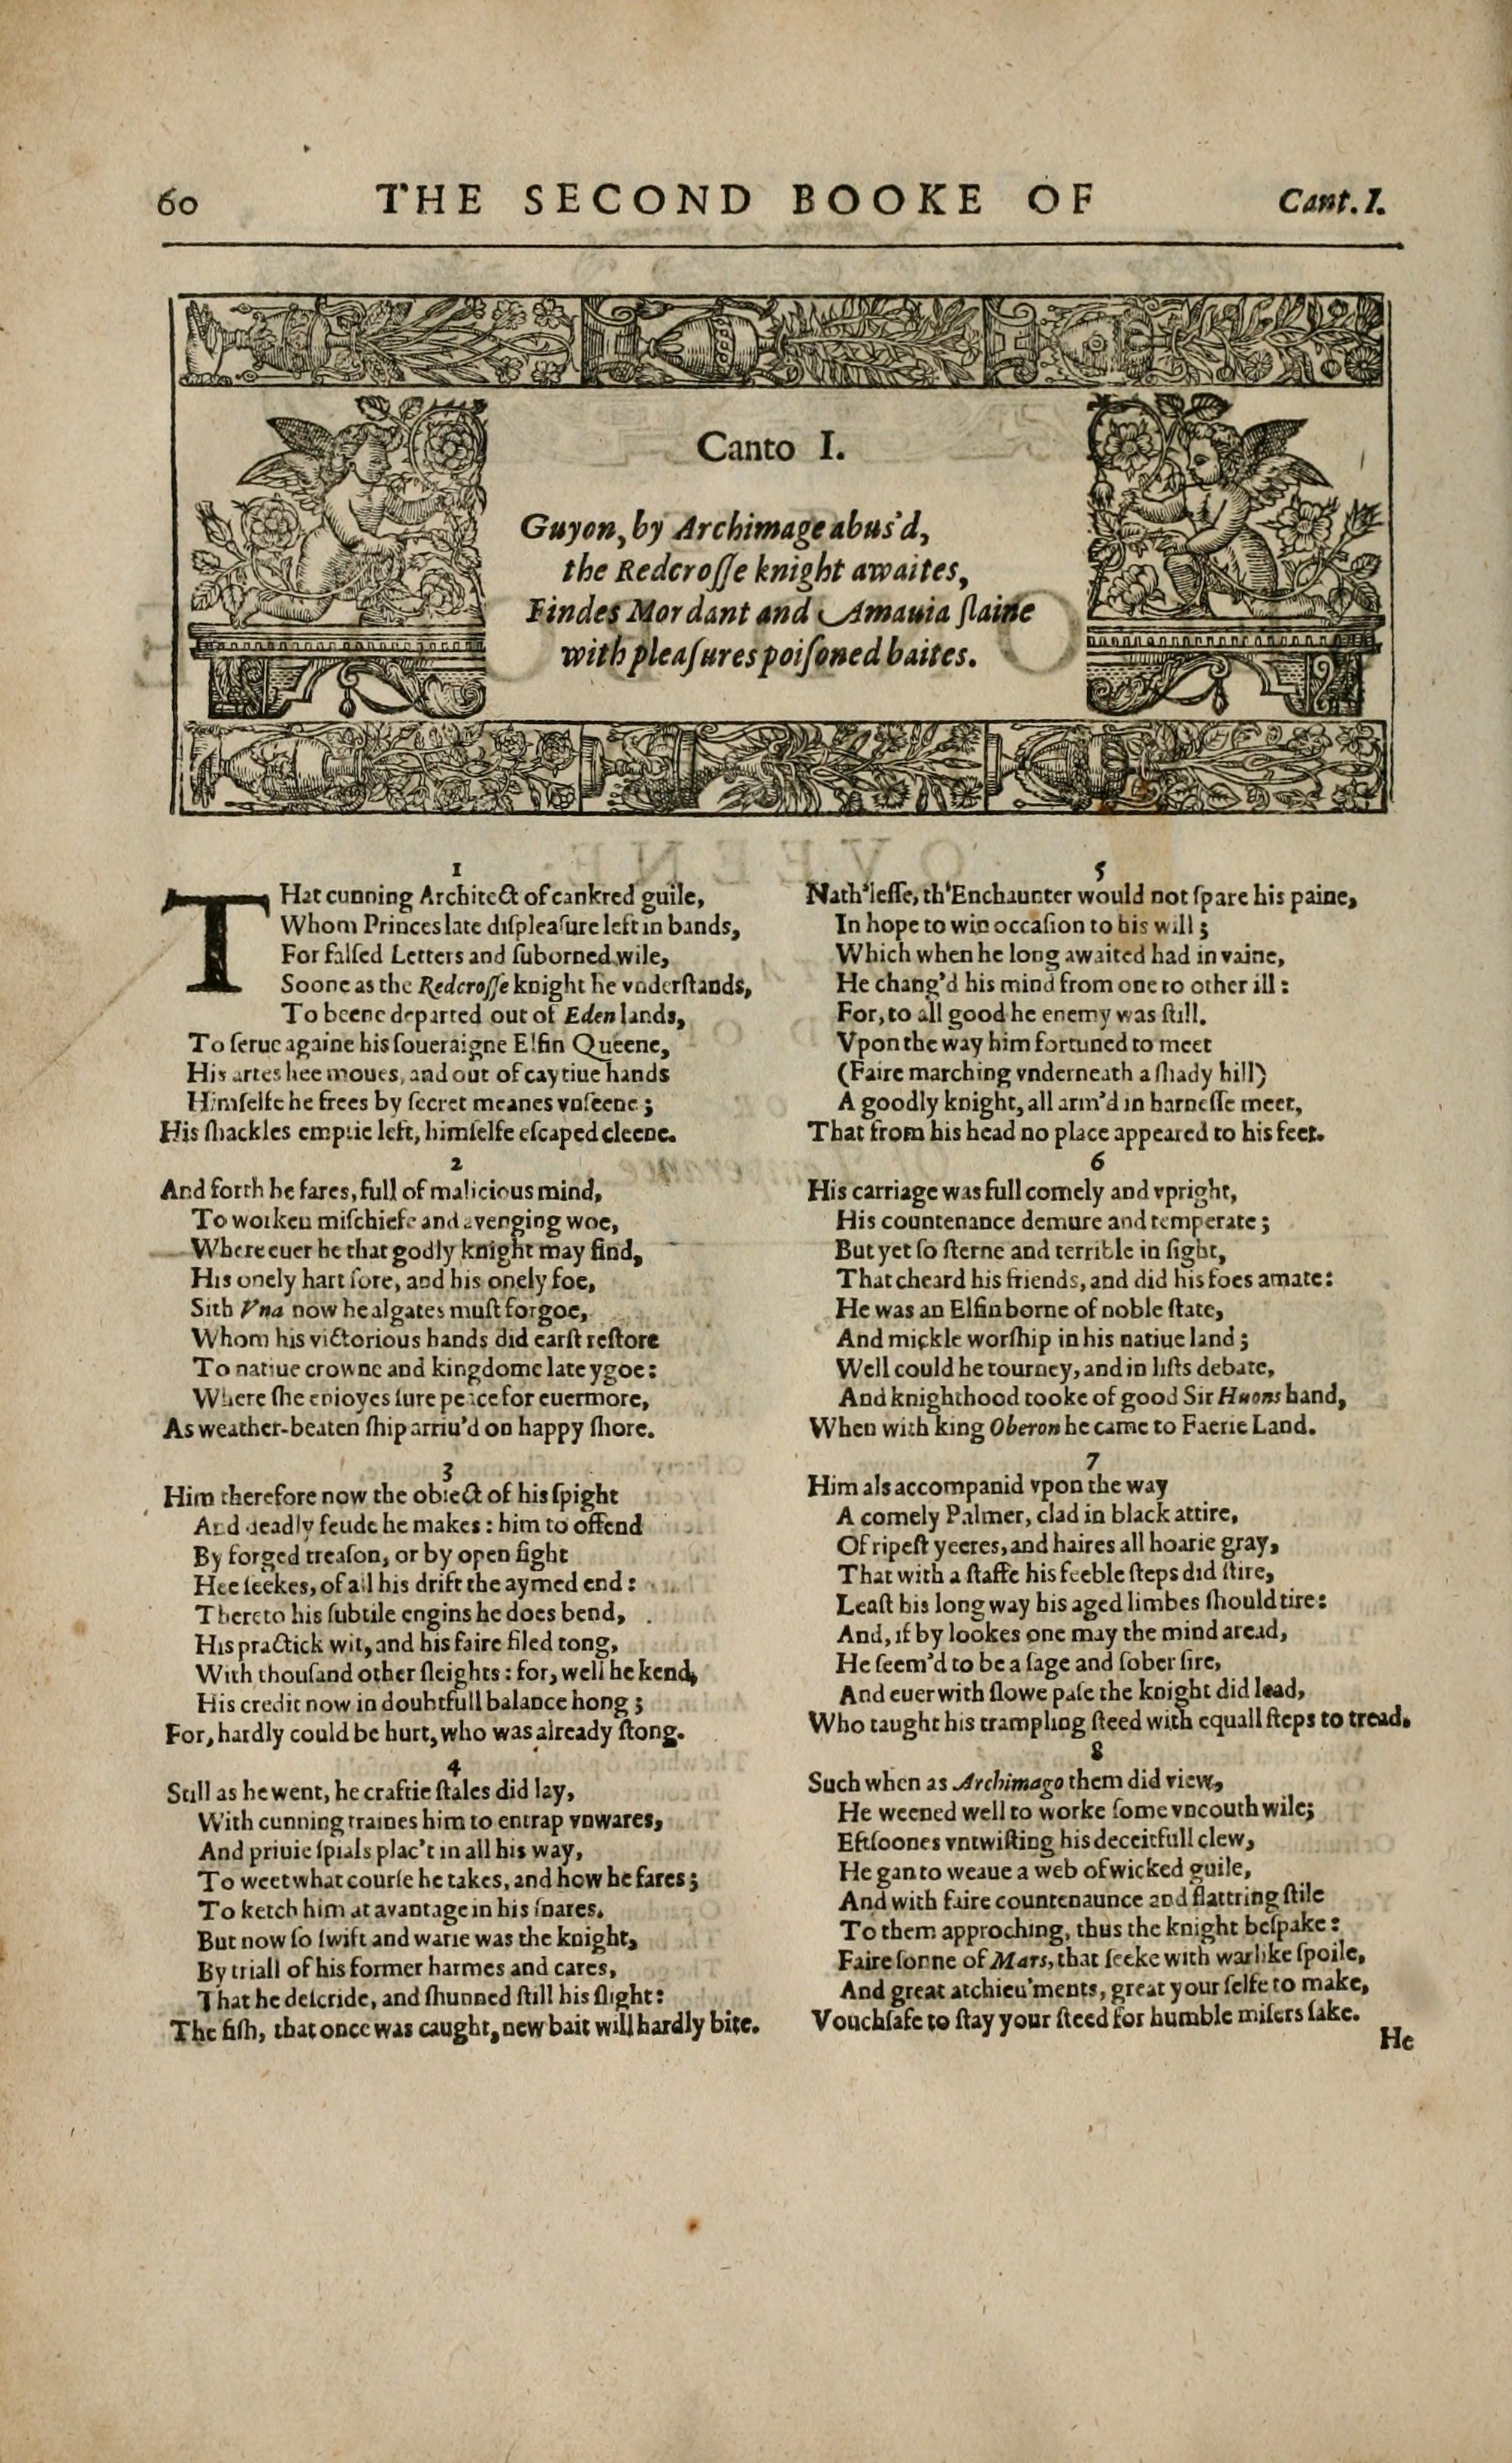 60 THE SECOND BOOKE OF Cant. I.
Canto I.
Guyon, by Archimage abus'd,
the Redcroſſe knight awaites,
Findes Mordant and Amauia ſlaine
with pleaſures poiſoned baites.
1
THat cunning Architect of cankred guile,
Whom Princes late diſpleaſure left in bands,
For falſed Letters and ſuborned wile,
Soone as the Redcroſſe knight he vnderſtands,
To beene departed out of Eden lands,
To ſerue againe his ſoueraigne Elfin Queene,
His artes hee moues, and out of caytiue hands
Himſelfe he frees by ſecret meanes vnſeene;
His ſhackles emptie left, himſelfe eſcaped cleene.
2
And forth he fares, full of malicious mind,
To worken miſchiefe and avenging woe,
Where euer he that godly knight may find,
His onely hart ſore, and his onely foe,
Sith Vna now he algates muſt forgoe,
Whom his victorious hands did earſt reſtore
To natiue crowne and kingdome late ygoe:
Where ſhe enioyes ſure peace for euermore,
As weather-beaten ſhip arriu'd on happy ſhore.
3
Him therefore now the obiect of his ſpight
And deadly feude he makes: him to offend
By forged treaſon, or by open fight
Hee ſeekes, of all his drift the aymed end:
Thereto his ſubtile engins he does bend,
His practick wit, and his faire filed tong,
With thouſand other ſleights: for, well he kend,
His credit now in doubtfull balance hong;
For, hardly could be hurt, who was already ſtong.
4
Still as he went, he craftie ſtales did lay,
With cunning traines him to entrap vnwares,
And priuie ſpials plac't in all his way,
To weet what courſe he takes, and how he fares;
To ketch him at avantage in his ſnares.
But now ſo ſwift and warie was the knight,
By triall of his former harmes and cares,
That he deſcride, and ſhunned ſtill his ſlight:
The fiſh, that once was caught, new bait will hardly bite.
5
Nath'leſſe, th'Enchaunter would not ſpare his paine,
In hope to win occaſion to his will;
Which when he long awaited had in vaine,
He chang'd his mind from one to other ill:
For, to all good he enemy was ſtill.
Vpon the way him fortuned to meet
(Faire marching vnderneath a ſhady hill)
A goodly knight, all arm'd in harneſſe meet,
That from his head no place appeared to his feet.
6
His carriage was full comely and vpright,
His countenance demure and temperate;
But yet ſo ſterne and terrible in ſight,
That cheard his friends, and did his foes amate:
He was an Elfin borne of noble ſtate,
And mickle worſhip in his natiue land;
Well could he tourney, and in liſts debate,
And knighthood tooke of good Sir Huons hand,
When with king Oberon he came to Faerie Land.
7
Him als accompanid vpon the way
A comely Palmer, clad in black attire,
Of ripeſt yeeres, and haires all hoarie gray,
That with a ſtaffe his feeble ſteps did ſtire,
Leaſt his long way his aged limbes ſhould tire:
And, if by lookes one may the mind aread,
He ſeem'd to be a ſage and ſober ſire,
And euer with ſlowe paſe the knight did lead,
Who taught his trampling ſteed with equall ſteps to tread.
8
Such when as Archimago them did view,
He weened well to worke ſome vncouth wile;
Eftſoones vntwiſting his deceitfull clew,
He gan to weaue a web of wicked guile,
And with faire countenaunce and flattring ſtile
To them approching, thus the knight beſpake:
Faire ſonne of Mars, that ſeeke with warlike ſpoile,
And great atchieu'ments, great your ſelfe to make,
Vouchſafe to ſtay your ſteed for humble miſers ſake.
He